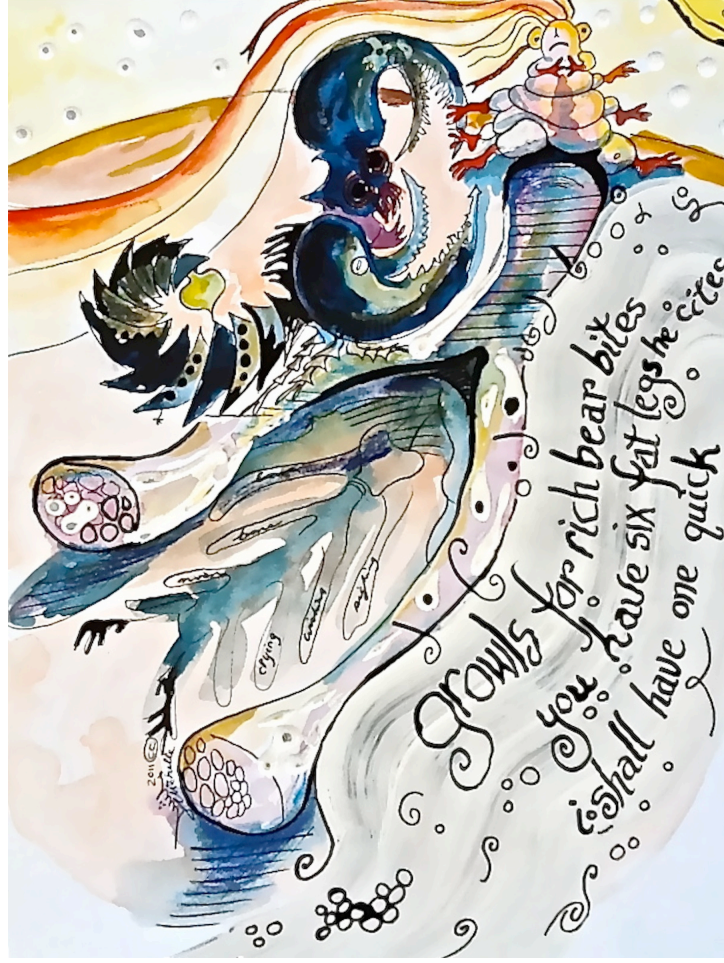 growls for rich bear bites
you have six fat legs he cites
i shall have one quick
crying
2011 ©
Michelle